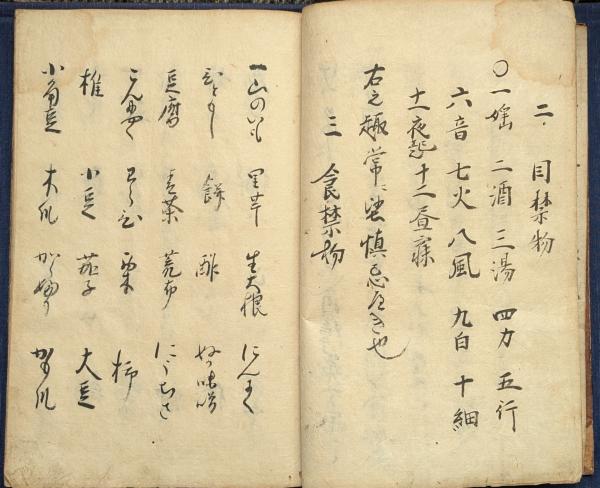 二 目禁物
〇一婬 二酒 三湯 四力 五行
六音 七火 八風 九白 十細
十一夜起 十二昼寐
右之趣常ニ堅慎忌へき也
三 食禁物
一山のいも 里芋 生大根 にんにく
餅 酢
豆腐 茶 荒布 にら ちさ
こんにやく 栗 柿
椎 小豆 茄子 大豆
小角豆 木瓜